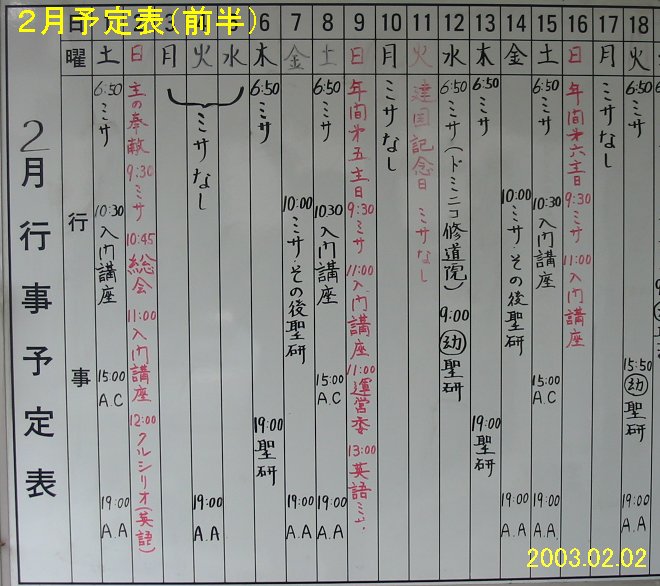 2月予定表(前半)
2月行事予定表
日
曜
行事
1 土 6:50 ミサ 10:30 入門講座 15:00 A.C 19:00 A.A
2 日 主の奉献 9:30 ミサ 10:45 総会 11:00 入門講座 12:00 クルシリオ(英語)
3 月
4 火 ミサなし 19:00 A.A
5 水
6 木 6:50 ミサ 19:00 聖研
7 金 10:00 ミサ その後聖研 19:00 A.A
8 土 6:50 ミサ 10:30 入門講座 15:00 A.C 19:00 A.A
9 日 年間第五主日 9:30 ミサ 11:00 入門講座 11:00 運営委 13:00 英語ミサ
10 月 ミサなし
11 火 建国記念日 ミサなし
12 水 6:50 ミサ(ドミニコ修道院) 9:00 幼 聖研
13 木 6:50 ミサ 19:00 聖研
14 金 10:00 ミサ その後聖研 19:00 A.A
15 土 6:50 ミサ 10:30 入門講座 15:00 A.C 19:00 A.A
16 日 年間第六主日 9:30 ミサ 11:00 入門講座
17 月 ミサなし
18 火 6:50 ミサ 15:50 幼 聖研 19:00 A.A
2003.02.02